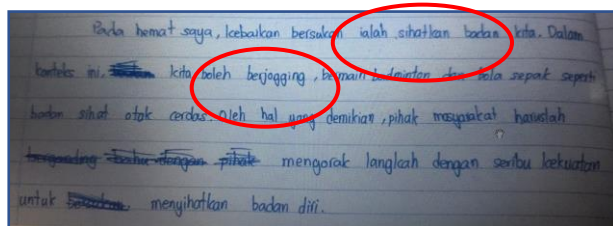 Pada hemat saya, kebaikan bersukan ialah sihatkan badan kita. Dalam
konteks ini, kita boleh berjogging, bermain badminton dan bola sepak seperti
badan sihat otak cerdas. Oleh hal yang demikian, pihak masyarakat haruslah
berganding bahu dengan pihak mengorak langkah dengan seribu kekuatan
untuk menyihatkan badan diri.